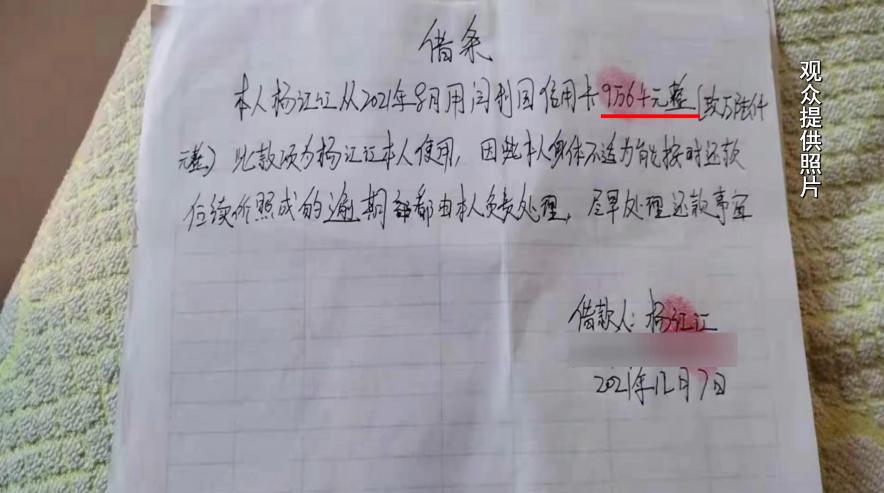 借条
本人杨江江从2021年8月用闫利国信用卡9564元整(玖万陆仟
元整)此款项为杨江江本人使用，因此本人身体不适为能按时还款
位续价照成的逾期都由本人负责处理，尽早处理还款事宜
借款人：杨江江
2021年12月7日
观众提供照片